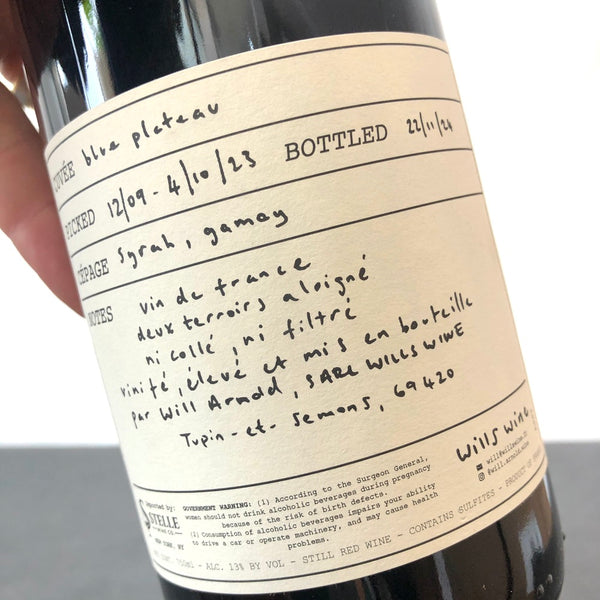 CUVÉE blue plateau
PICKED 12/09 - 4/10/23 BOTTLED 22/11/24
CÉPAGE Syrah, gamay
NOTES vin de france
deux terroirs aloigné
ni collé, ni filtré
vinifé, élevé et mis en bouteille
par Will Arnold, SARL WILLS WINE
Tupin-et-Semons, 69420
wills wine
@will.arnold.wine
Imported by:
NEW YORK, NY
GOVERNMENT WARNING: (1) According to the Surgeon General,
women should not drink alcoholic beverages during pregnancy
because of the risk of birth defects.
(2) Consumption of alcoholic beverages impairs your ability
to drive a car or operate machinery, and may cause health
problems.
750ml - ALC. 13% BY VOL - STILL RED WINE - CONTAINS SULFITES - PRODUCT OF